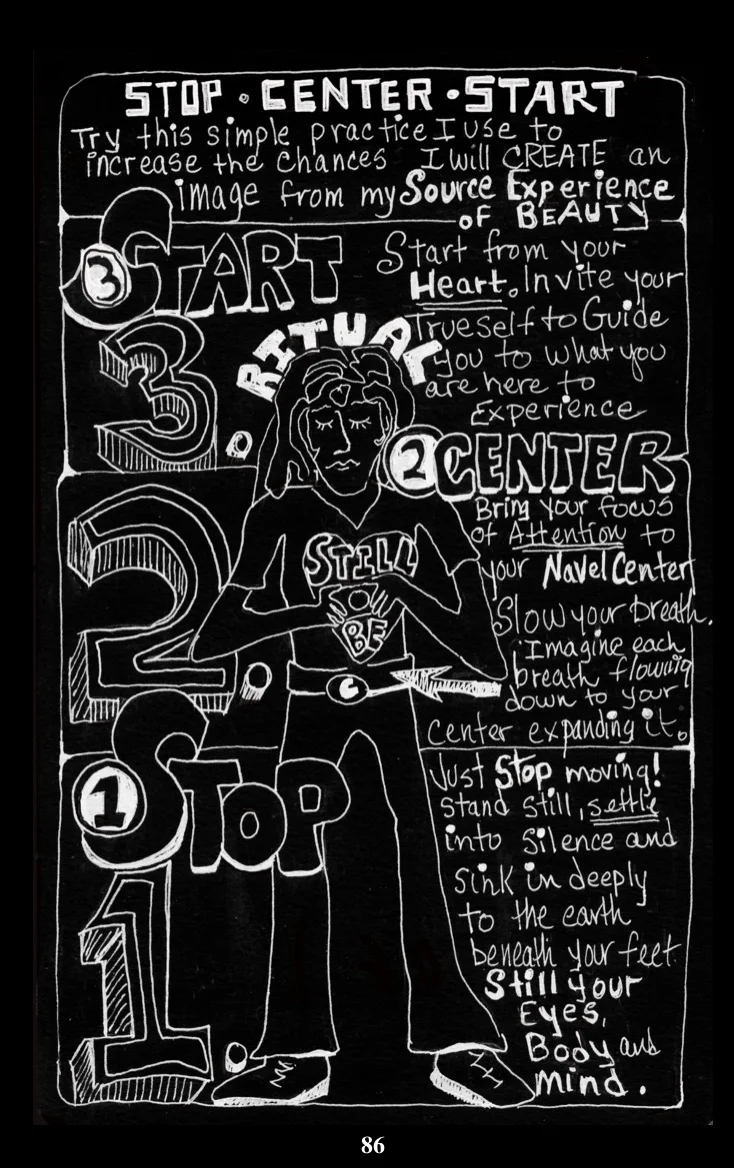 STOP • CENTER • START
Try this simple practice I use to
increase the chances I will CREATE an
image from my Source Experience
of BEAUTY
3 START
Start from your
Heart. Invite your
Trueself to Guide
you to what you
are here to
Experience
3.
RITUAL
2 CENTER
Bring your focus
of Attention to
your Navel Center
Slow your breath.
Imagine each
breath flowing
down to your
center expanding it.
2.
STILL
BE
C
1 STOP
Just Stop moving!
Stand still, settle
into Silence and
sink in deeply
to the earth
beneath your feet
Still your
Eyes,
Body and
mind.
1.
86